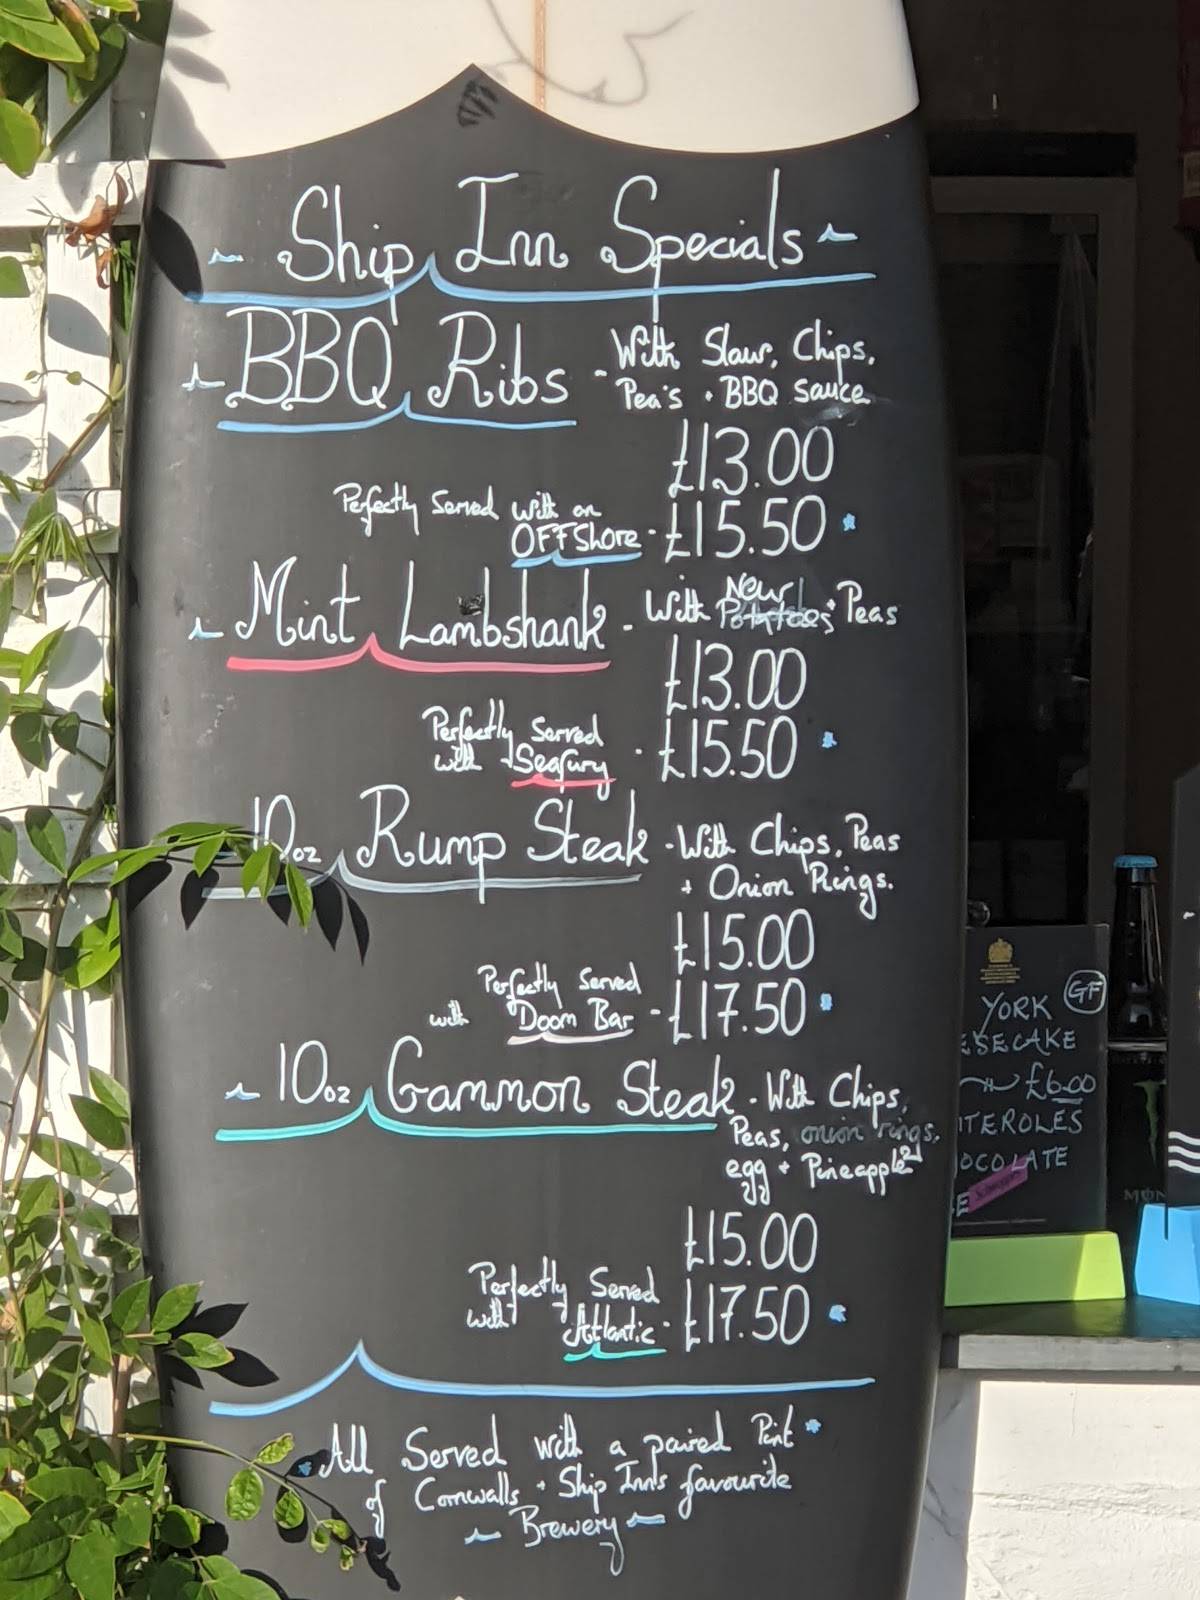 Ship Inn Specials
BBQ Ribs - With Slaw, Chips,
Pea's + BBQ Sauce
£13.00
Perfectly Served with an
OFFShore - £15.50 *
Mint Lambshank - With New
Potatoes + Peas
£13.00
Perfectly Served
with Seafury - £15.50 *
10oz Rump Steak - With Chips, Peas
+ Onion Rings.
£15.00
Perfectly Served
with Doom Bar - £17.50 *
10oz Gammon Steak - With Chips,
Peas, onion rings,
egg + Pineapple
£15.00
Perfectly Served
with Atlantic - £17.50 *
* All Served with a paired Pint *
of Cornwalls + Ship Inn's favourite
Brewery
YORK GF
ESECAKE
£6.00
ITEROLES
OCOLATE